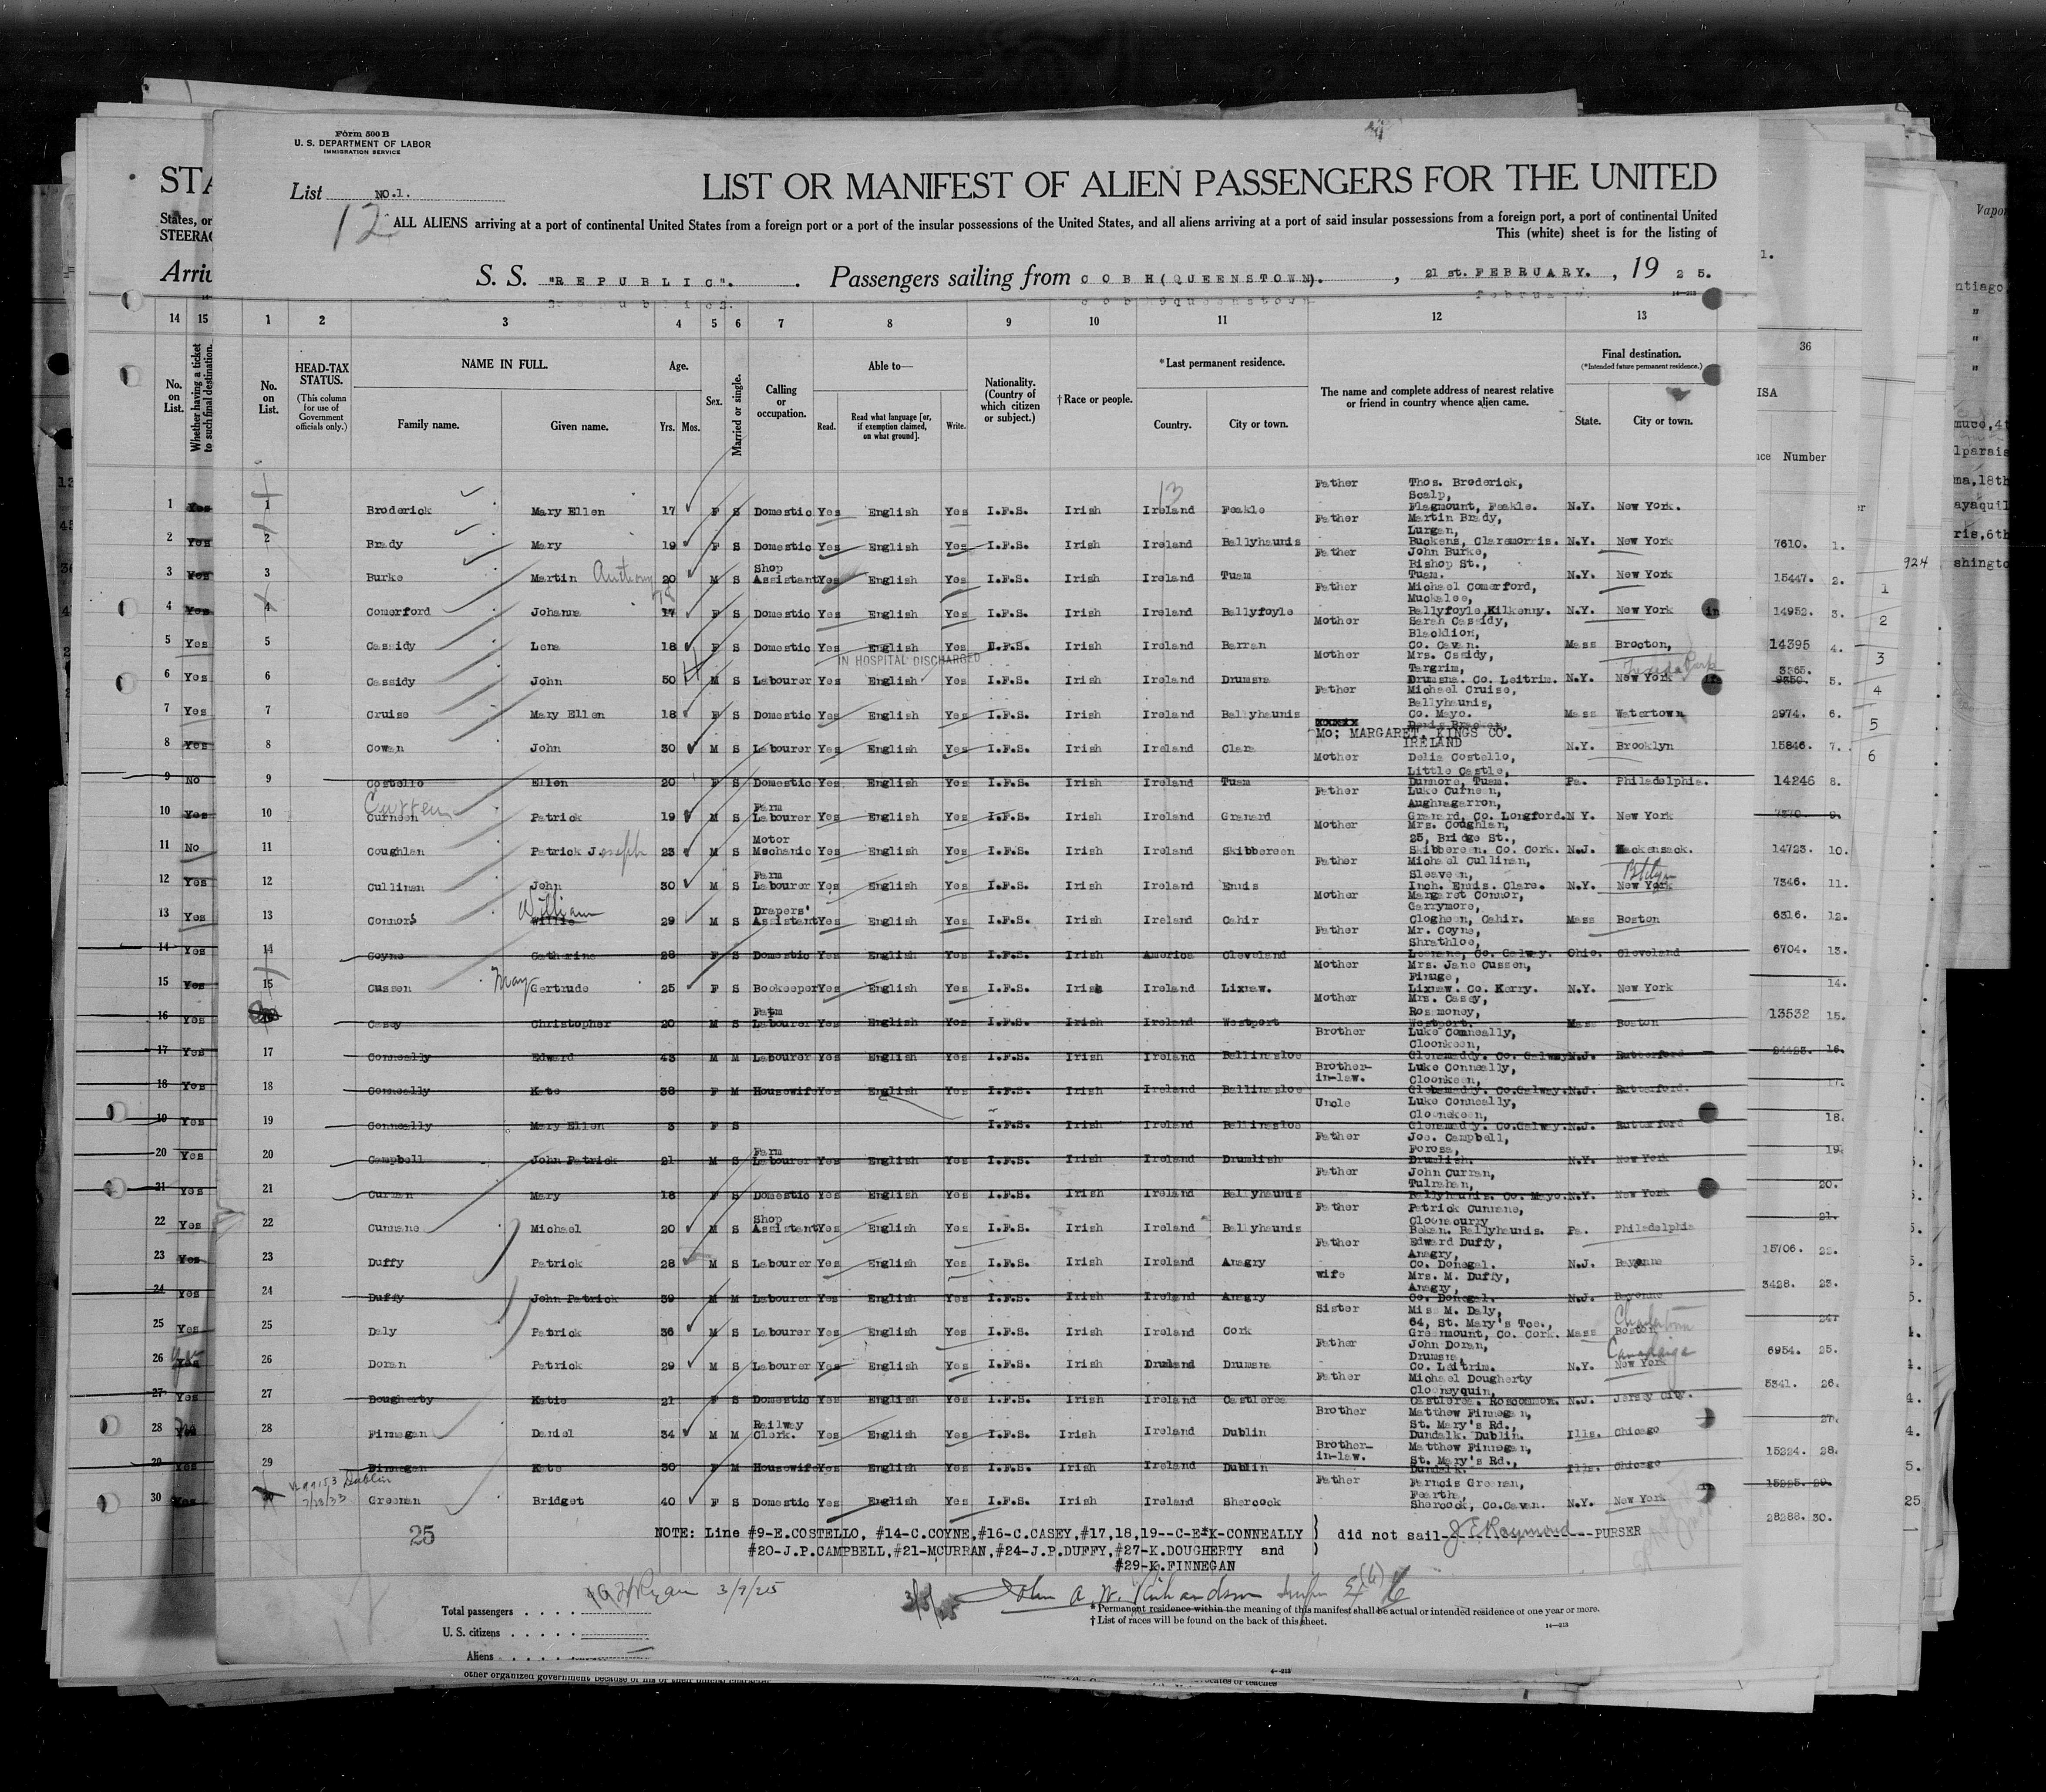 Form 500 B
U. S. DEPARTMENT OF LABOR
IMMIGRATION SERVICE
List NO.1.
12
LIST OR MANIFEST OF ALIEN PASSENGERS FOR THE UNITED
ALL ALIENS arriving at a port of continental United States from a foreign port or a port of the insular possessions of the United States, and all aliens arriving at a port of said insular possessions from a foreign port, a port of continental United
This (white) sheet is for the listing of
S. S. "REPUBLIC". Passengers sailing from COBH(QUEENSTOWN). , 21st. FEBRUARY. , 19 25.
1 2 3 4 5 6 7 8 9 10 11 12 13
No. on List. HEAD-TAX STATUS. (This column for use of Government officials only.) NAME IN FULL. Family name. Given name. Age. Yrs. Mos. Sex. Married or single. Calling or occupation. Able to— Read. Read what language [or, if exemption claimed, on what ground]. Write. Nationality. (Country of which citizen or subject.) †Race or people. *Last permanent residence. Country. City or town. The name and complete address of nearest relative or friend in country whence alien came. Final destination. (*Intended future permanent residence.) State. City or town.
1 Broderick Mary Ellen 17 F S Domestic Yes English Yes I.F.S. Irish Ireland Feakle Father Thos. Broderick, Scalp, Flagmount, Feakle. N.Y. New York.
2 Brady Mary 19 F S Domestic Yes English Yes I.F.S. Irish Ireland Ballyhaunis Father Martin Brady, Lurgan, Buckens, Claremorris. N.Y. New York
3 Burke Martin Anthony 20 M S Shop Assistant Yes English Yes I.F.S. Irish Ireland Tuam Father John Burke, Bishop St., Tuam. N.Y. New York
4 Comerford Johanna 17 F S Domestic Yes English Yes I.F.S. Irish Ireland Ballyfoyle Father Michael Comerford, Muckalee, Ballyfoyle,Kilkenny. N.Y. New York
5 Cassidy Lena 18 F S Domestic Yes English Yes I.F.S. Irish Ireland Barran Mother Sarah Cassidy, Blacklion, Co. Cavan. Mass Brocton,
IN HOSPITAL DISCHARGED
6 Cassidy John 50 M S Labourer Yes English Yes I.F.S. Irish Ireland Drumsna Mother Mrs. Cssidy, Targrim, Drumsna. Co. Leitrim. N.Y. New York
7 Cruise Mary Ellen 18 F S Domestic Yes English Yes I.F.S. Irish Ireland Ballyhaunis Father Michael Cruise, Ballyhaunis, Co. Mayo. Mass Watertown
8 Cowan John 30 M S Labourer Yes English Yes I.F.S. Irish Ireland Clara Mo; MARGARET, KINGS CO. IRELAND N.Y. Brooklyn
9 Costello Ellen 20 F S Domestic Yes English Yes I.F.S. Irish Ireland Tuam Mother Delia Costello, Little Castle, Dunmore, Tuam. Pa. Philadelphia.
10 Curneen Curreen Patrick 19 M S Farm Labourer Yes English Yes I.F.S. Irish Ireland Granard Father Luke Curneen, Aughnagarron, Granard, Co. Longford. N Y. New York
11 Coughlan Patrick J.oseph 23 M S Motor Mechanic Yes English Yes I.F.S. Irish Ireland Skibbereen Mother Mrs. Coughlan, 25, Bridge St., Skibbereen. Co. Cork. N.J. Hackensack.
12 Cullinan John 30 M S Farm Labourer Yes English Yes I.F.S. Irish Ireland Ennis Father Michael Cullinan, Sleaveen, Inch. Ennis. Clare. N.Y. New York Bklyn
13 Connors William Willie 29 M S Drapers' Assistant Yes English Yes I.F.S. Irish Ireland Cahir Mother Margaret Connor, Garrymore, Clogheen, Cahir. Mass Boston
14 Coyne Catherine 28 F S Domestic Yes English Yes I.F.S. Irish America Cleveland Father Mr. Coyne, Shrathloe, Leenane, Co. Galway. Ohio. Cleveland
15 Cussen May Gertrude 25 F S Bookeeper Yes English Yes I.F.S. Irish Ireland Lixnaw. Mother Mrs. Jane Cussen, Finuge, Lixnaw. Co. Kerry. N.Y. New York
16 Casey Christopher 20 M S Farm Labourer Yes English Yes I.F.S. Irish Ireland Westport Mother Mrs. Casey, Rosmoney, Westport. Mass Boston
17 Conneally Edward 43 M M Labourer Yes English Yes I.F.S. Irish Ireland Ballinasloe Brother Luke Conneally, Cloonkeen, Glenamaddy. Co. Galway N.J. Rutterford
18 Conneally Kate 38 F M Housewife Yes English Yes I.F.S. Irish Ireland Ballinasloe Brother-in-law. Luke Conneally, Cloonkeen, Glenamaddy. Co.Galway. N.J. Rutterford.
19 Conneally Mary Ellen 3 F S I.F.S. Irish Ireland Ballinasloe Uncle Luke Conneally, Cloonckeen, Glenamaddy. Co.Galway. N.J. Rutterford
20 Campbell John Patrick 21 M S Farm Labourer Yes English Yes I.F.S. Irish Ireland Drumlish Father Joe. Campbell, Forosa, Drumlish. N.Y. New York
21 Curran Mary 18 F S Domestic Yes English Yes I.F.S. Irish Ireland Ballyhaunis Father John Curran, Tulrahan, Ballyhaunis. Co. Mayo. N.Y. New York
22 Cunnane Michael 20 M S Shop Assistant Yes English Yes I.F.S. Irish Ireland Ballyhaunis Father Patrick Cunnane, Clooncurry Bekan. Ballyhaunis. Pa. Philadelphia
23 Duffy Patrick 28 M S Labourer Yes English Yes I.F.S. Irish Ireland Anagry Father Edward Duffy, Anagry, Co. Donegal. N.J. Bayonne
24 Duffy John Patrick 39 M M Labourer Yes English Yes I.F.S. Irish Ireland Anagry wife Mrs. M. Duffy, Anagry, Co. Donegal. N.J. Bayonne
25 Daly Patrick 36 M S Labourer Yes English Yes I.F.S. Irish Ireland Cork Sister Miss M. Daly, 64, St. Mary's Tce., Greenmount, Co. Cork. Mass Boston
26 Doran Patrick 29 M S Labourer Yes English Yes I.F.S. Irish Drumsna Father John Doran, Drumsna, Co. Leitrim. N.Y. New York
27 Dougherty Katie 21 F S Domestic Yes English Yes I.F.S. Irish Ireland Castlerea Father Michael Dougherty Cloonyquin, Castlerea. Roscommon. N.J. Jersey City.
28 Finnegan Daniel 34 M M Railway Clerk. Yes English Yes I.F.S. Irish Ireland Dublin Brother Matthew Finnegan, St. Mary's Rd., Dundalk. Dublin. Ills. Chicago
29 Finnegan Kate 30 F M Housewife Yes English Yes I.F.S. Irish Ireland Dublin Brother-in-law. Matthew Finnegan, St. Mary's Rd., Dundalk. Ills. Chicago
30 Greenan Bridget 40 F S Domestic Yes English Yes I.F.S. Irish Ireland Shercock Father Farncis Greenan, Fearths, Shercock, Co.Cavan. N.Y. New York
25
NOTE: Line #9-E.COSTELLO, #14-C.COYNE,#16-C.CASEY,#17,18,19--C-E*K-CONNEALLY
#20-J.P.CAMPBELL,#21-MCURRAN,#24-J.P.DUFFY,#27-K.DOUGHERTY and
#29-K.FINNEGAN
did not sail J E Raymond PURSER
3/9/25
3/3/25 John A. W. Richardson
Total passengers
U. S. citizens
Aliens
*Permanent residence within the meaning of this manifest shall be actual or intended residence of one year or more.
†List of races will be found on the back of this sheet.
14—213